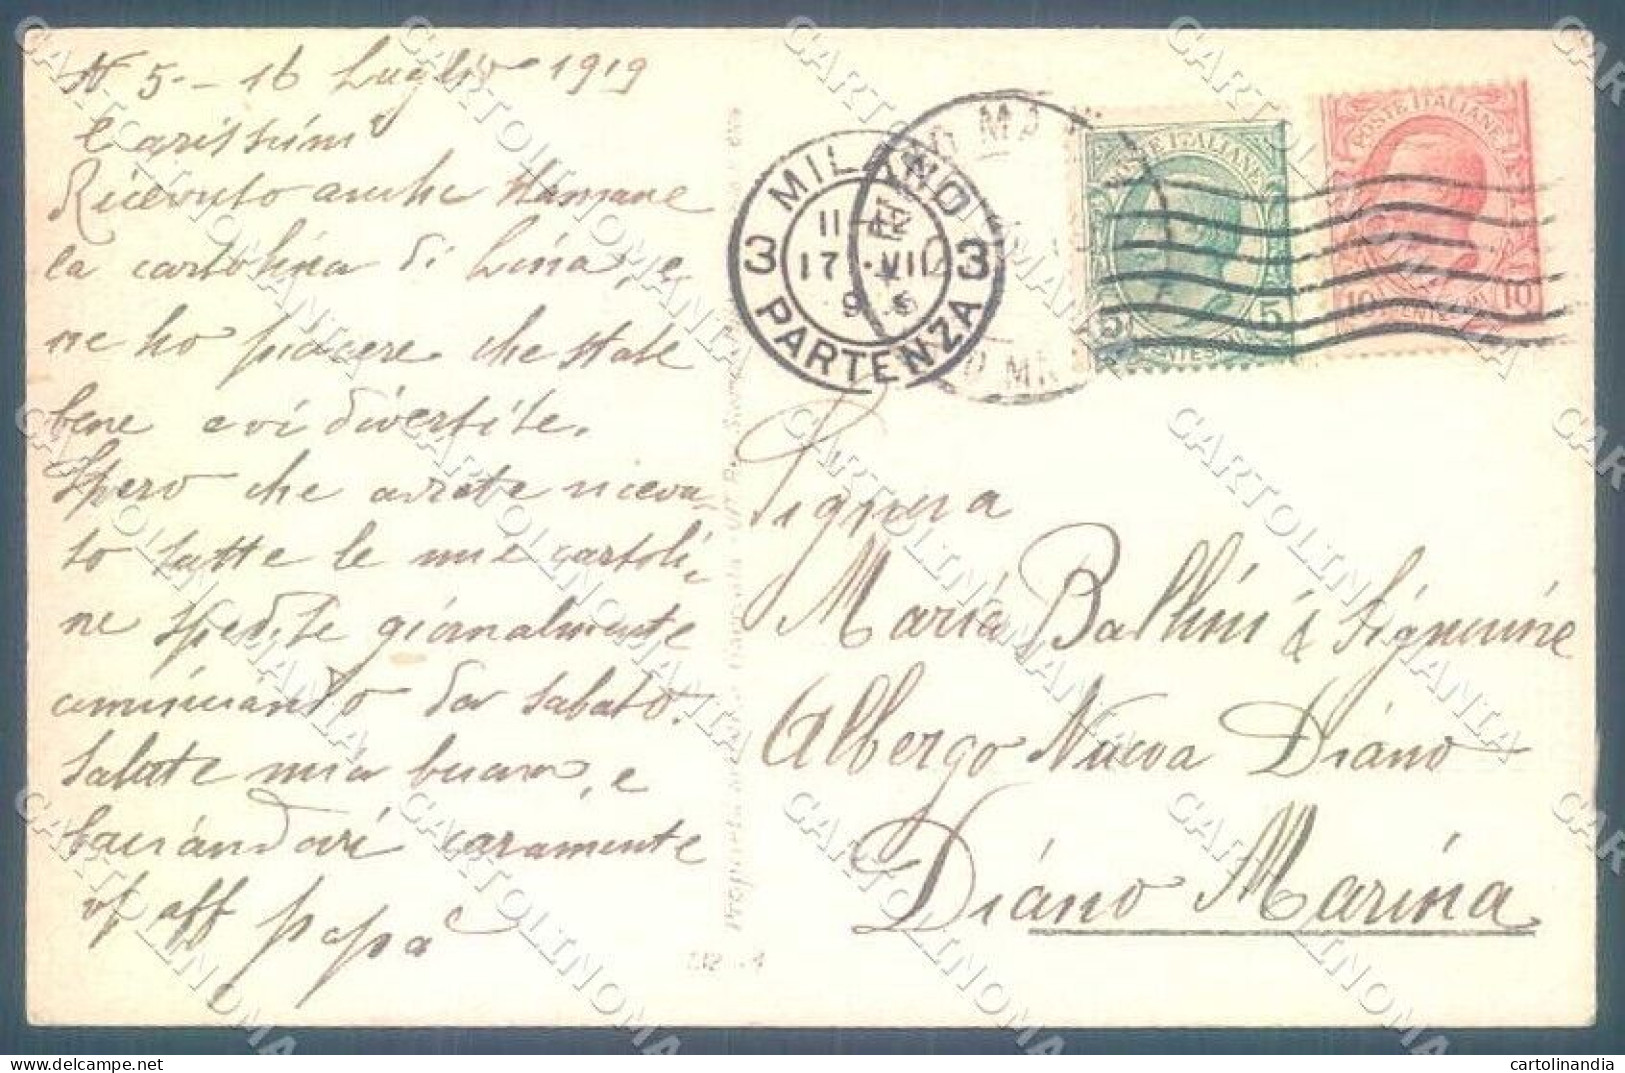 N 5 - 16 Luglio 1919
Carissimi
Ricevuto anche stamane
la cartolina di Lina, e
ne ho piacere che state
bene e vi divertite.
Spero che avrete ricevu
to tutte le mie cartoli
ne spedite giornalmente
cominciando da sabato.
Salute mia buona, e
baciandovi caramente
vs aff papà
MILANO
PARTENZA
3 3
17 · VII
POSTE ITALIANE
5 5
POSTE ITALIANE
10 10
Signora
Maria Ballini & Signorine
Albergo Nuova Diano
Diano Marina
CARTOLINOMANIA
cartolinandia